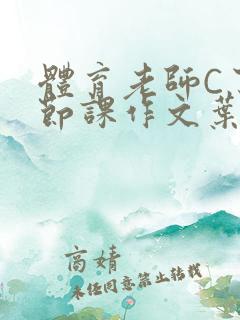 體育老師C了
節課作文葉
高婧
未经同意禁止转载